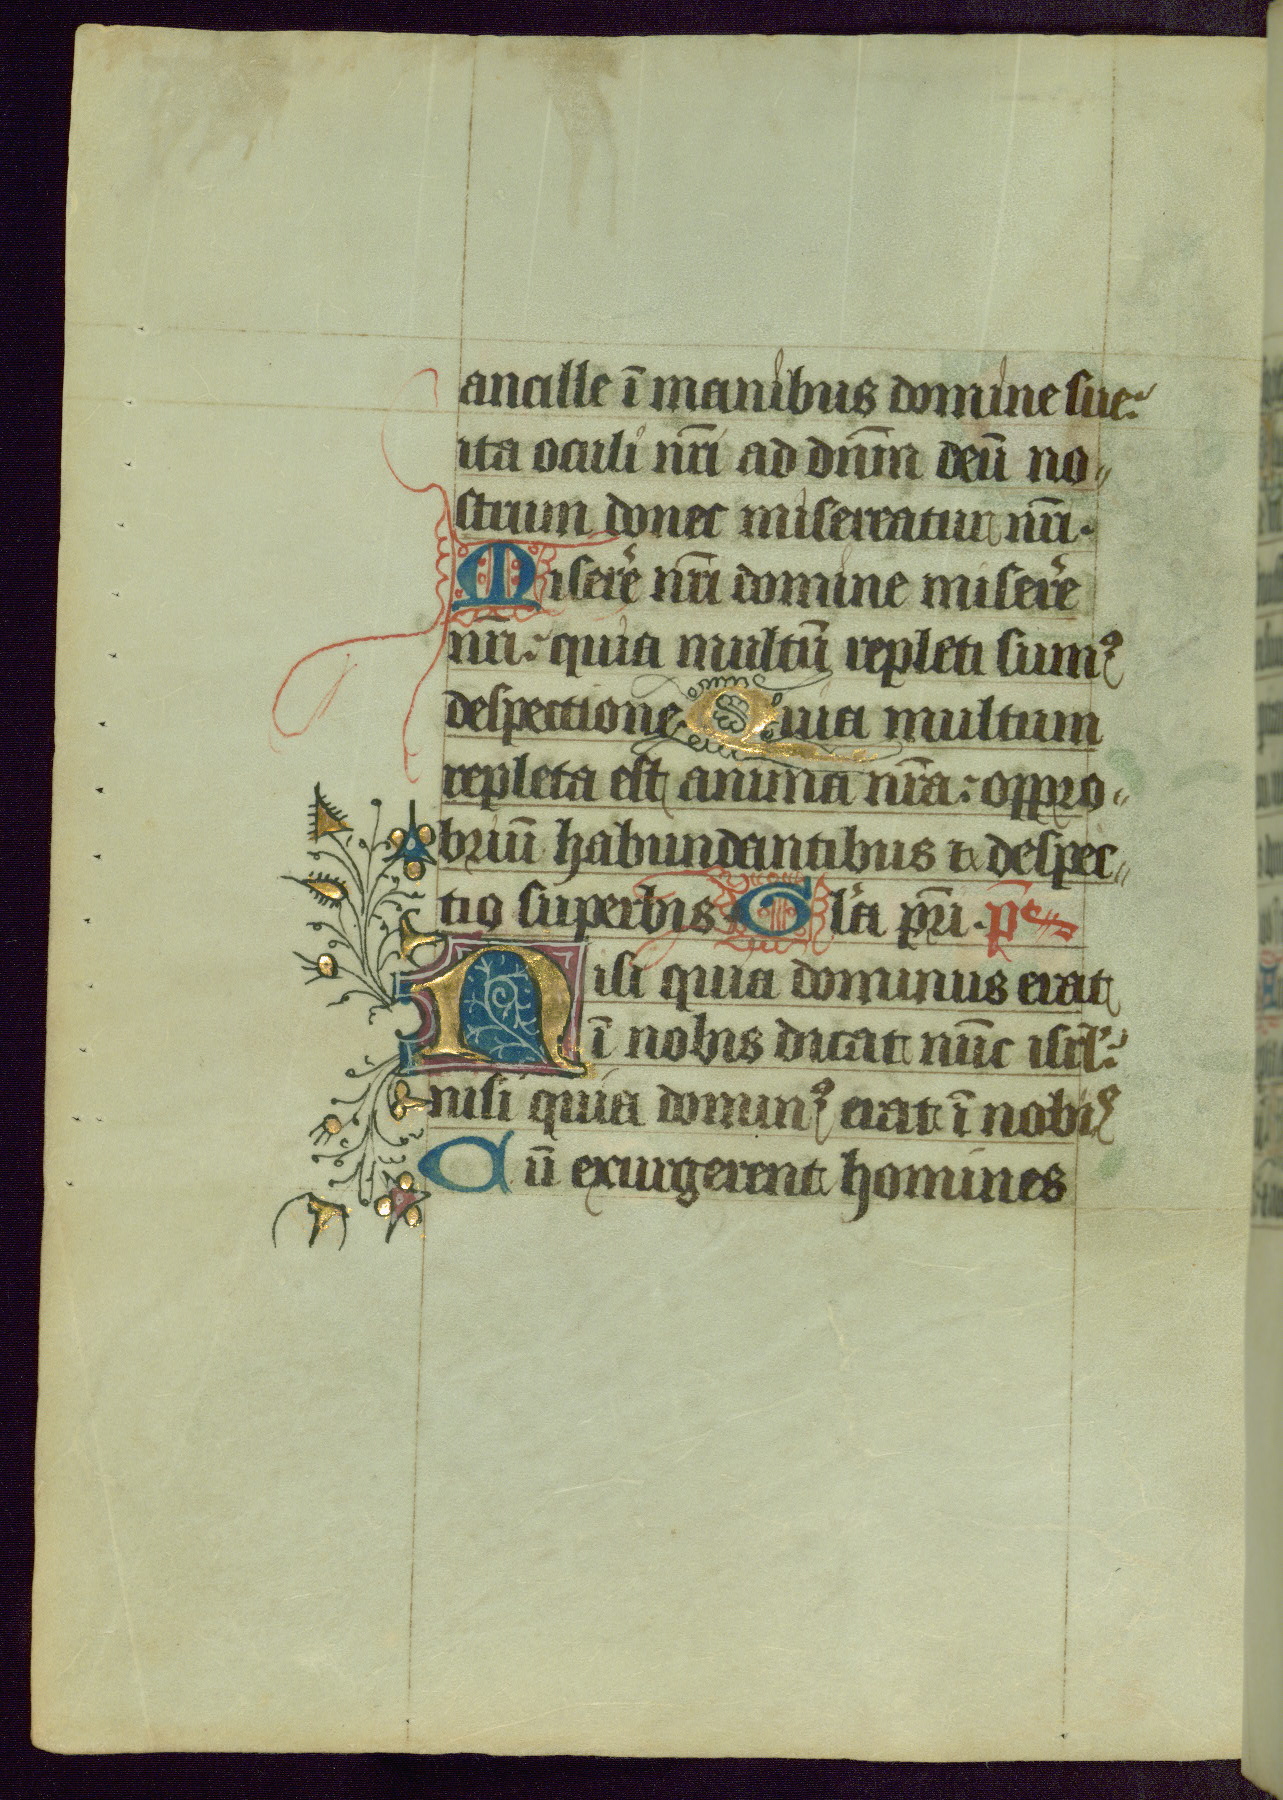 ancille ī manibus domine sue:
ita oculi nr̄i ad dn̄m deū no-
strum donec misereatur nr̄i.
Miserêre nr̄i domine miserêre
nr̄i: quia multū repleti sumꝰ
despectione Quia multum
repleta est anima nr̄a: oppro-
briū habundantibus ⁊ despec-
tio superbis Gl̄a pr̄i. pŝ
Nisi quia dominus erat
ī nobis dicat nūc isrl̄:
nisi quia dominꝰ erat ī nobiꝰ
Cū exurgerent homines